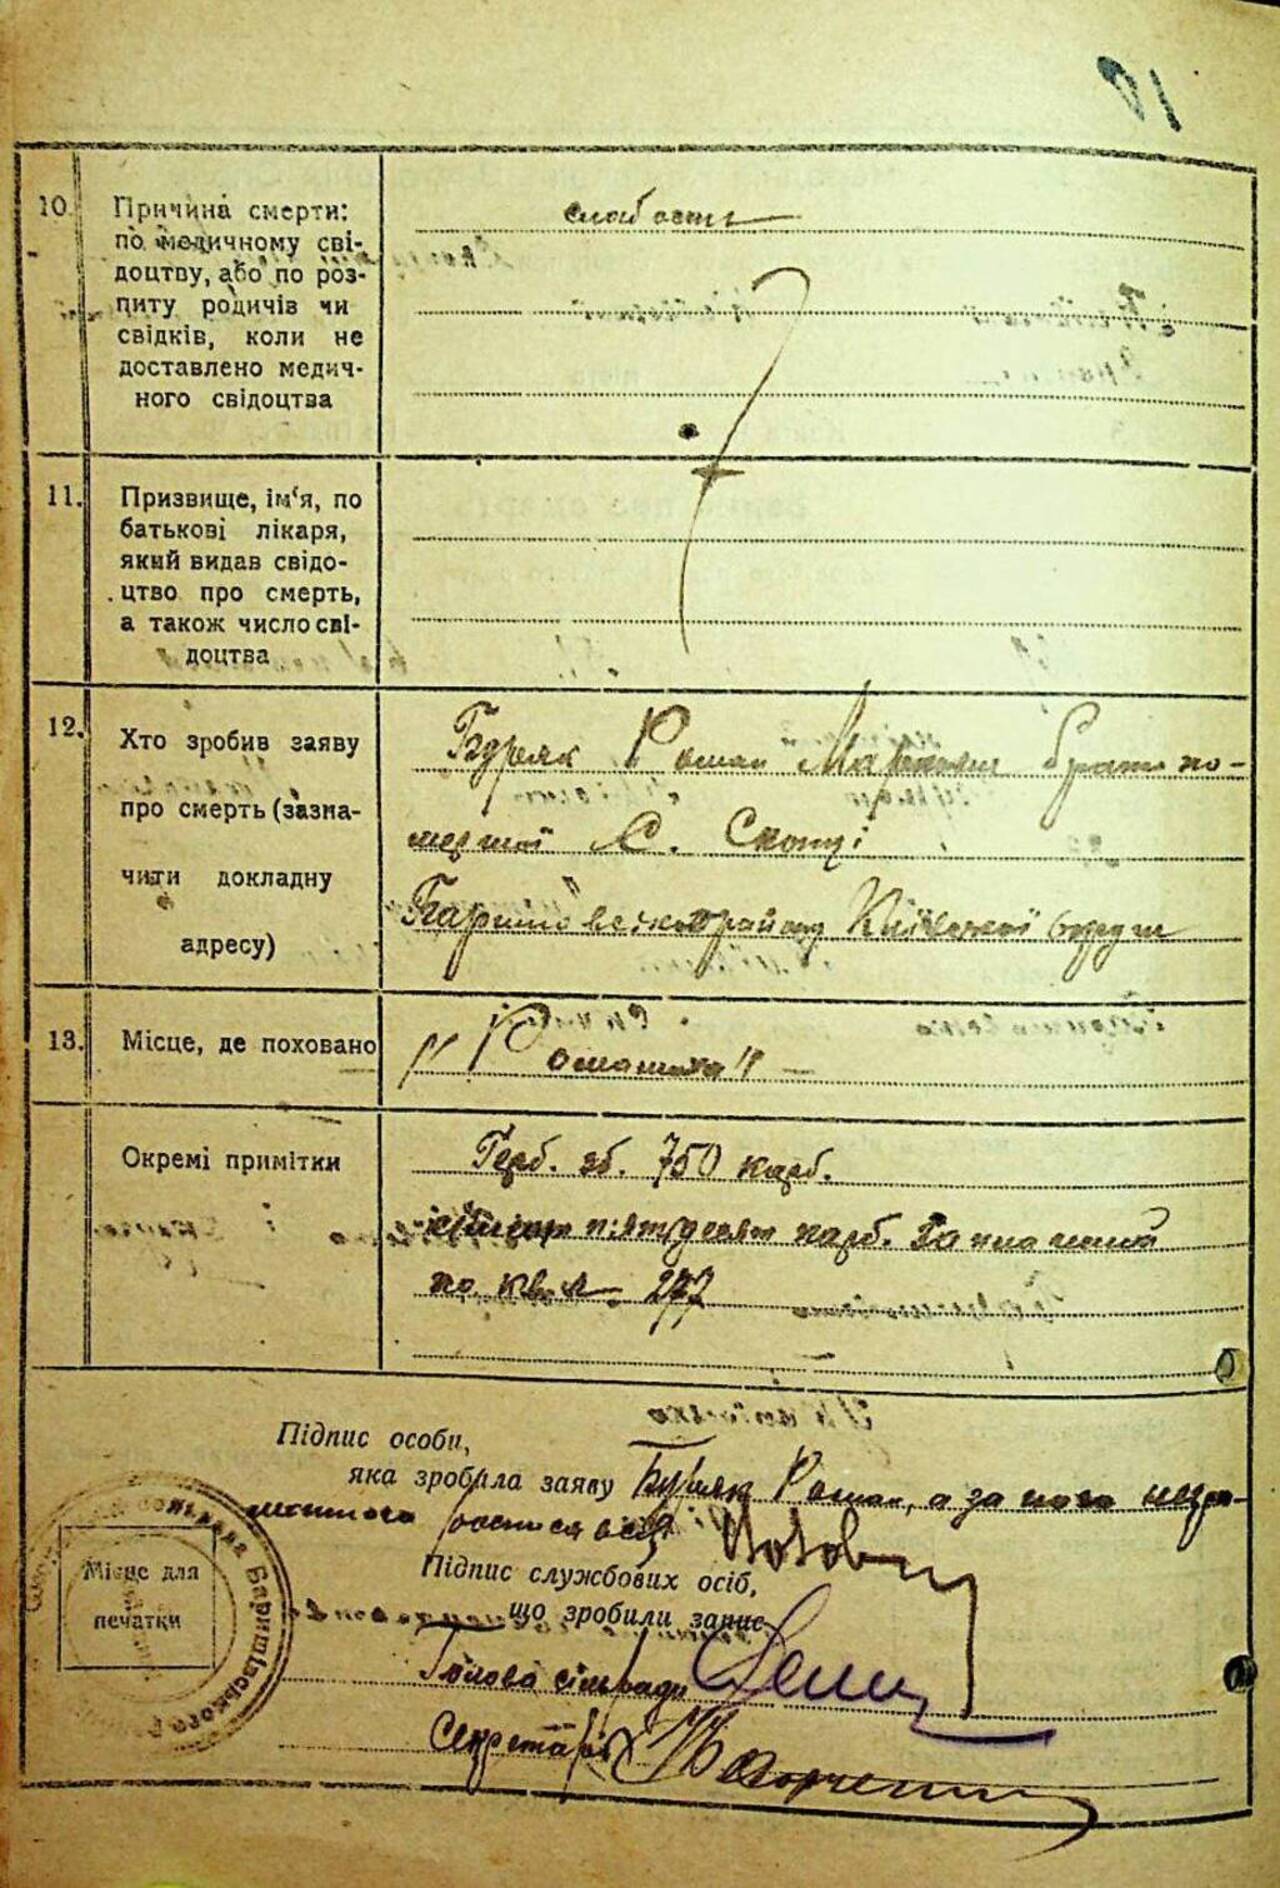 10.
Причина смерти:
по медичному сві-
доцтву, або по роз-
питу родичів чи
свідків, коли не
доставлено медич-
ного свідоцтва
слабость
11.
Призвище, ім'я, по
батькові лікаря,
який видав свідо-
цтво про смерть,
а також число сві-
доцтва
12.
Хто зробив заяву
про смерть (зазна-
чити докладну
адресу)
Буряк Роман брат по-
мершой С. Скопці
Баришовського району Київської
13.
Місце, де поховано
"Ромашиха"
Окремі примітки
Герб. зб. 750 карб.
сімсот пятдесят карб.
по кв. № 277
Підпис особи,
яка зробила заяву Буряк Роман, а за него негра-
мотного росписався
Підпис службових осіб,
що зробили запис
Голова сільради
Секретарь
Місце для
печатки
Баришівського